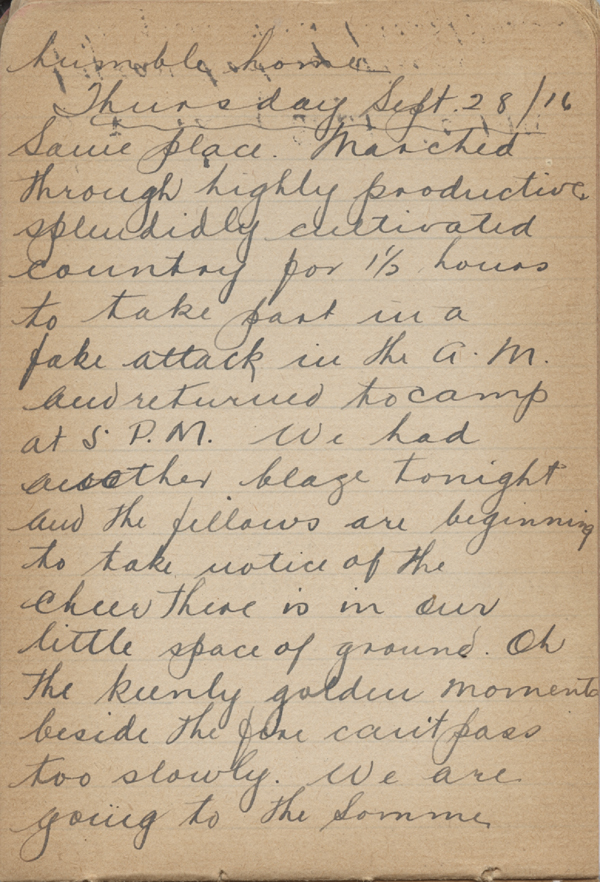 humble home
Thursday Sept. 28/16
Same place. Marched
through highly productive
splendidly cultivated
country for 1½ hours
to take part in a
fake attack in the A.M.
and returned to camp
at 5 P.M. We had
another blaze tonight
and the fellows are beginning
to take notice of the
cheer there is in our
little space of ground. Oh
the keenly golden moments
beside the fire can't pass
too slowly. We are
going to the Somme